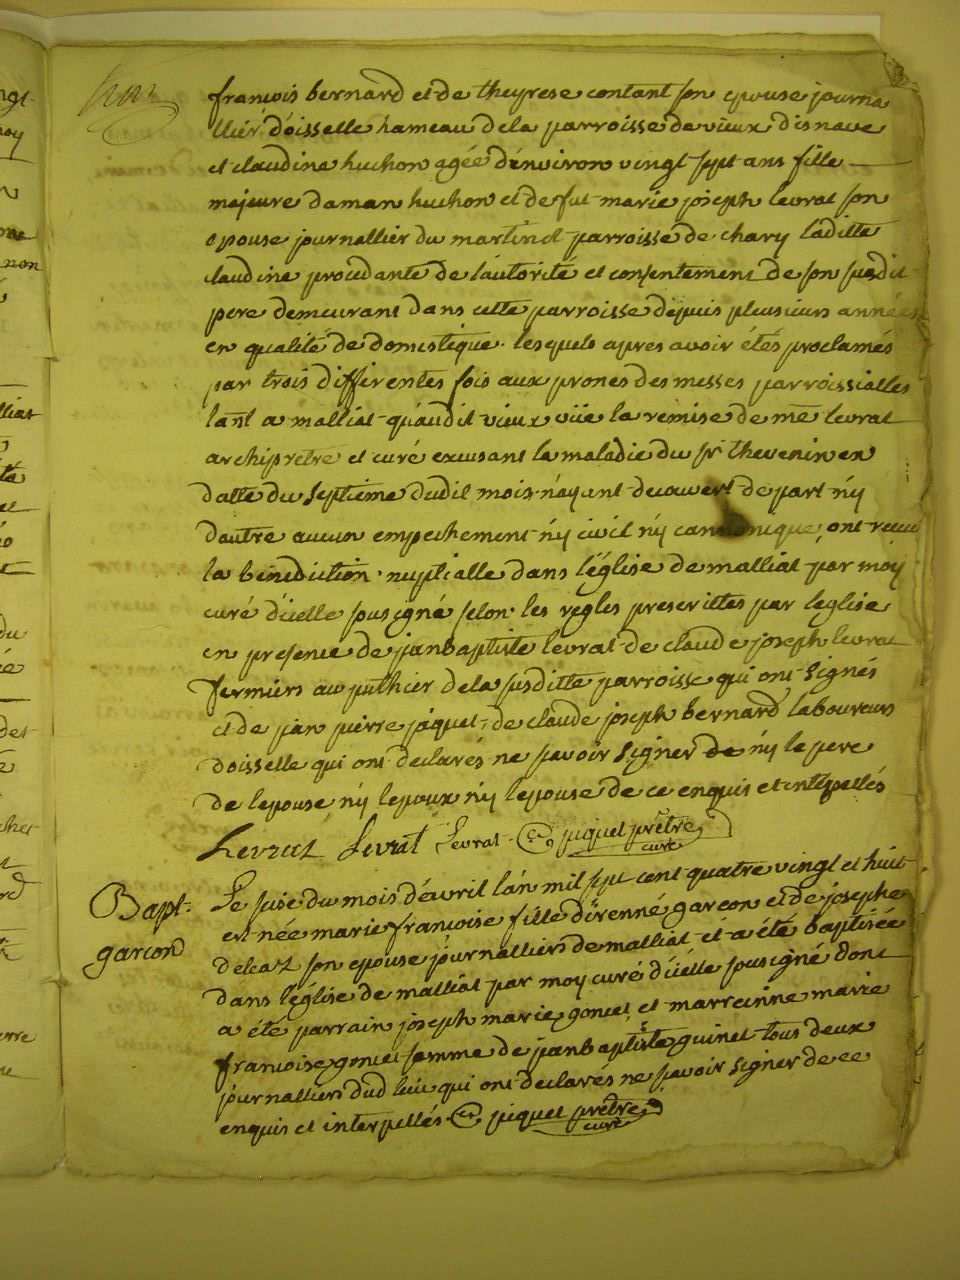 francois bernard et de theyrese contant son epouse journa
llier d'oisselle hameau de la parroisse de vieux disnave
et claudine huchon agée d'environ vingt sept ans fille
majeure d'aman huchon et de fut marie joseph levrat son
epouse journallier du martinet parroisse de charix laditte
claudine procedante de l'autorité et consentement de son susdit
pere demeurant dans cette parroisse depuis plusieurs années
en qualité de domestique. lesquels apres avoir étés proclamés
par trois differentes fois aux prones des messes parroissialles
tant a malliat qu'audit vieux vüe la remise de me levrat
archiprêtre et curé excusant la maladie du sr thevenin en
datte du septieme dudit mois n'ayant decouvert de part n'y
d'autre aucun empechement n'y civil n'y canonique, ont recu
la bénédiction nuptialle dans l'église de malliat par moy
curé d'icelle sousigné selon les regles prescrittes par l'eglise
en presence de jeanbaptiste levrat de claude joseph levrat
fermiers au puthier de la susditte parroisse qui ont signés
et de jean pierre jaquet, de claude joseph bernard laboureurs
d'oisselle qui ont declarés ne savoir signer de n'y le pere
de l'epouse n'y l'epoux n'y l'epouse de ce enquis et intépellés
Levrat Levrat Levrat piquet prêtre
curé
Bapt.
garcon
Le susd. du mois d'avril l'an mil sept cent quatre vingt et huit
est née marie francoise fille d'irenné garcon et de josephe
delcaz son epouse journalliers de malliat et a été baptisée
dans l'église de malliat par moy curé d'icelle sousigné dont
a été parrain joseph marie gonet et marreinne marie
francoise gonet femme de jeanbaptiste guinet tous deux
journalliers dud lieu qui ont declarés ne savoir signer de ce
enquis et interpellés. piquet prêtre
curé